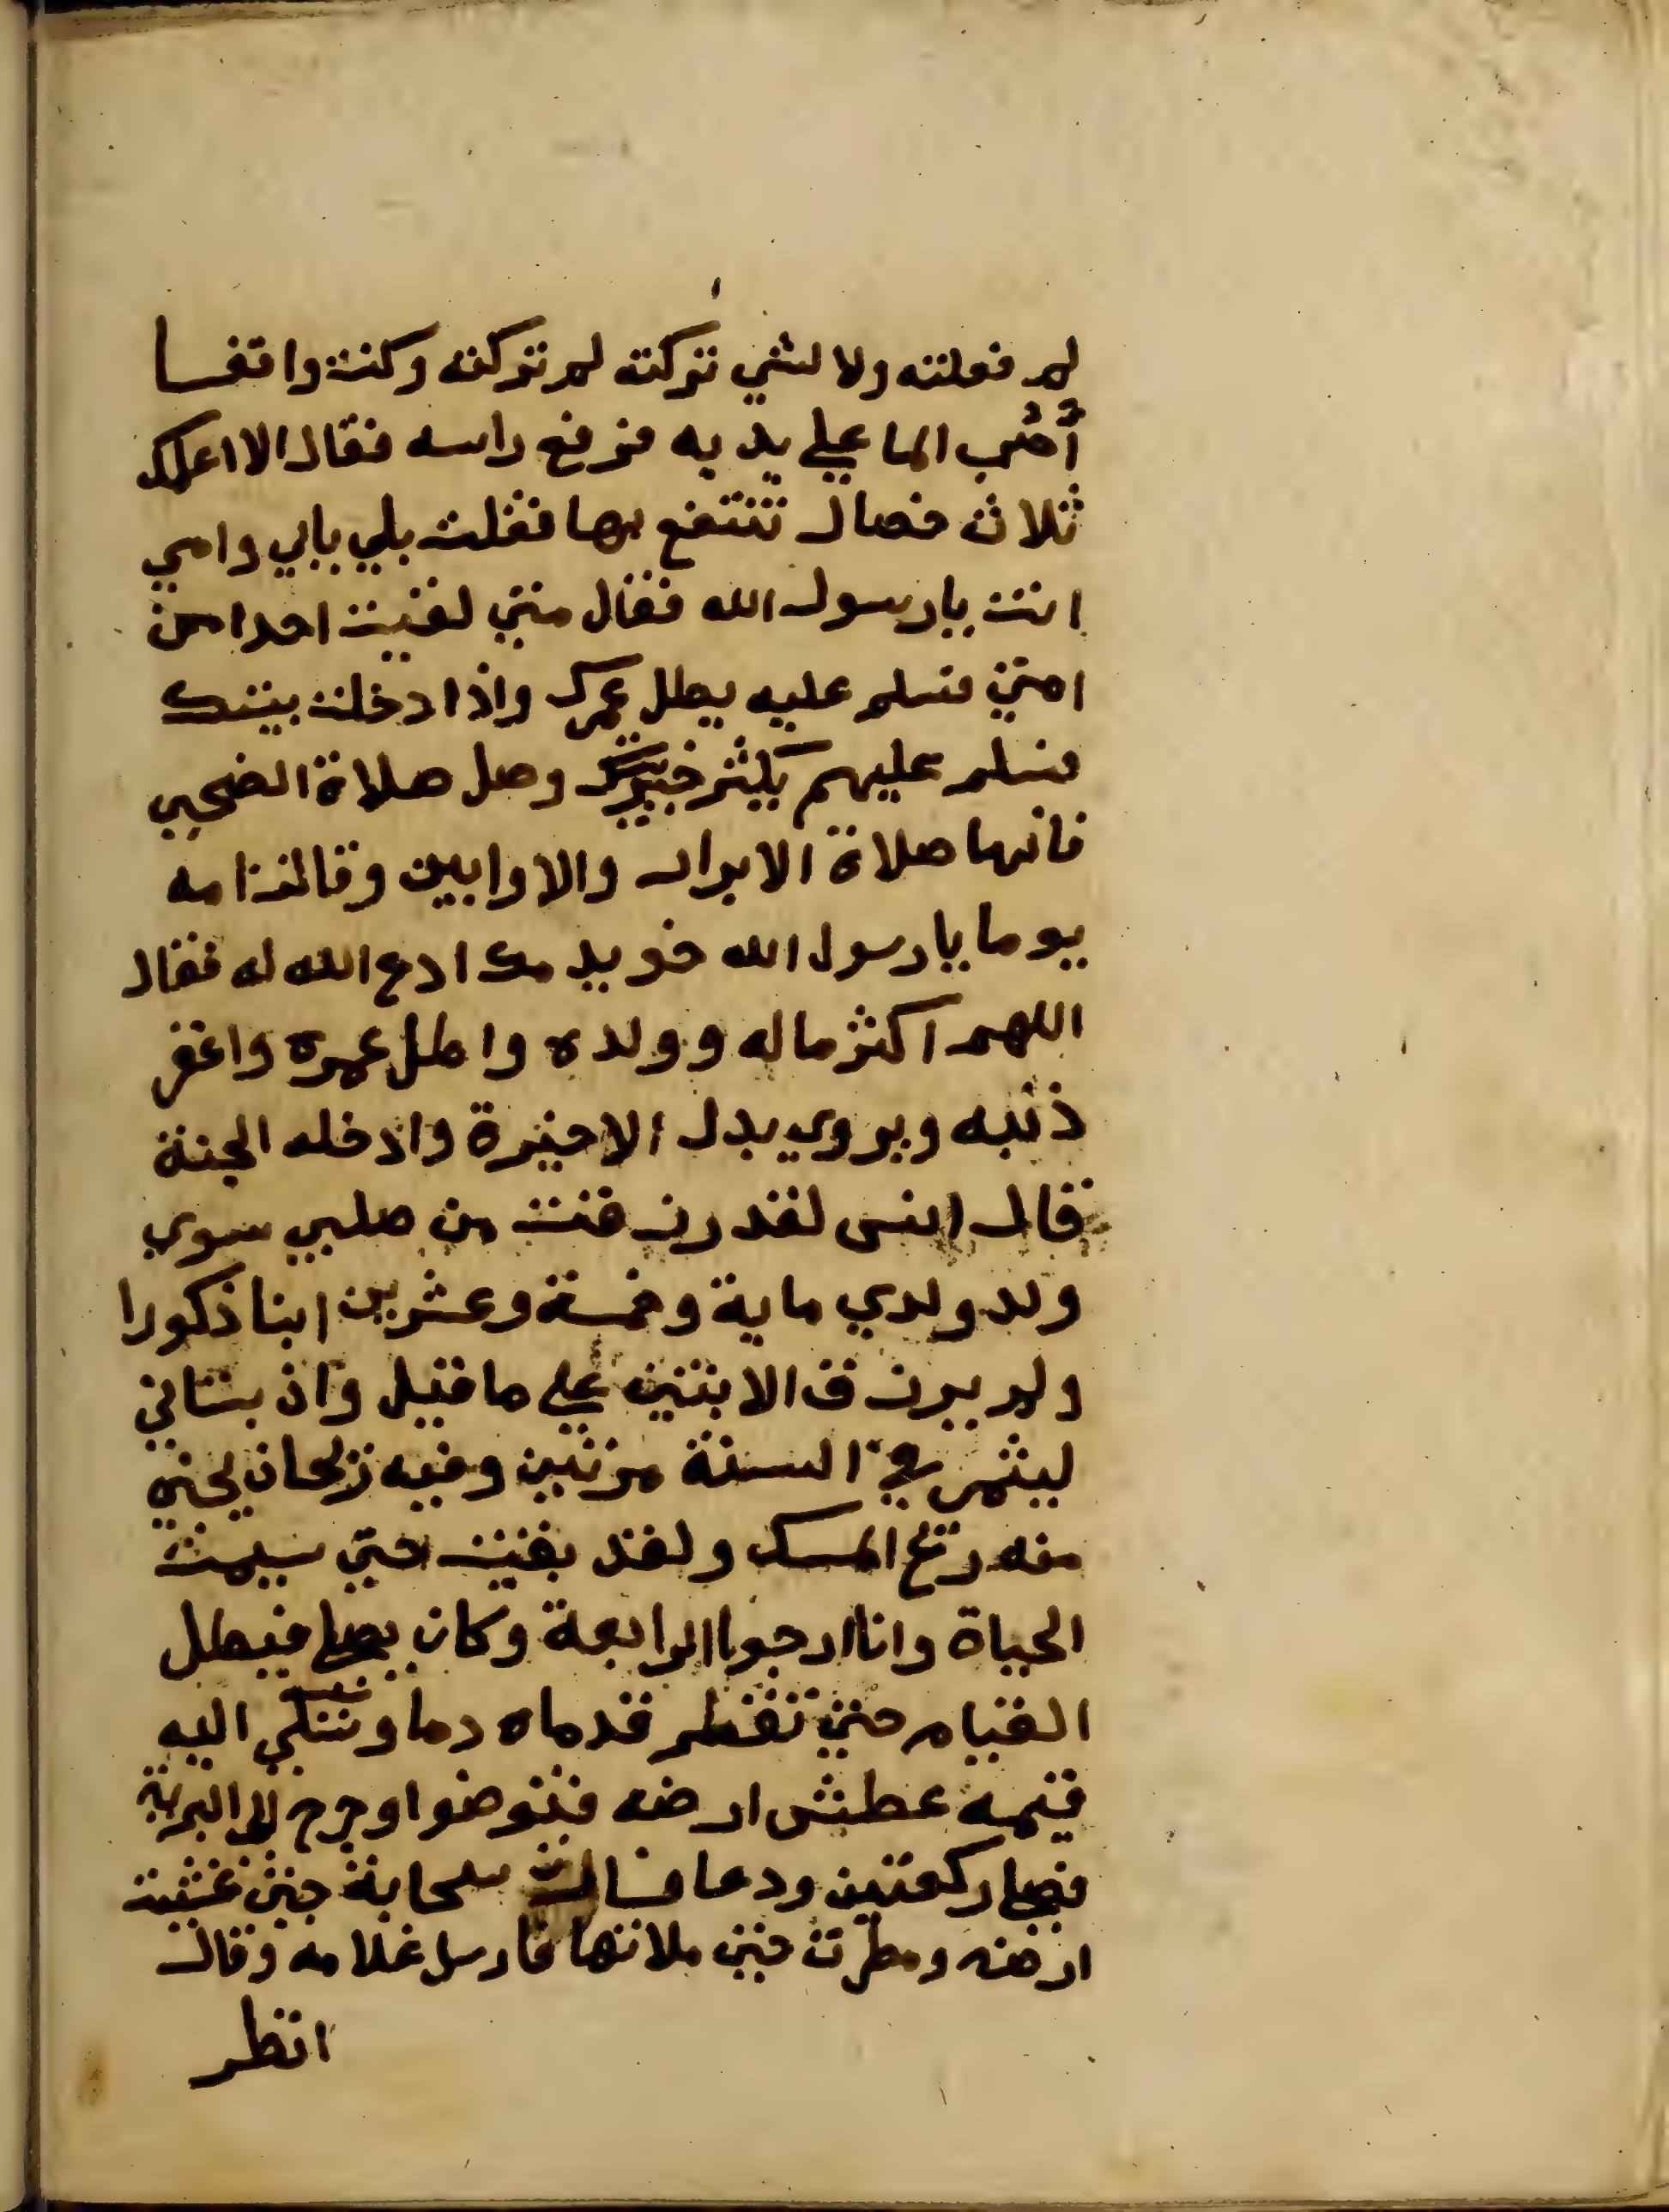 لم فعلته ولا لشي تركته لم تركته وكنت واقفا
أصب الما علي يديه فرفع راسه فقال الا اعلمك
ثلاث خصال تنتفع بها فقلت بلي بابي وامي
انت يارسول الله فقال متي لقيت احدا من
امتي فسلم عليه يطل عمرك واذا دخلت بيتك
فسلم عليهم يكثر خيربيتك وصل صلاة الضحي
فانها صلاة الابرار والاوابين وقالت امه
يوما يارسول الله خويدمك ادع الله له فقال
اللهم اكثر ماله وولده واطل عمره واغفر
ذنبه ويروي بدل الاخيرة وادخله الجنة
قال انس لقد رزقت من صلبي سوي
ولد ولدي ماية وخمسة وعشرين ابنا ذكورا
ولم يرزق الابنتين علي ما قيل وان بستاني
ليثمر في السنة مرتين وفيه ريحان يجي
منه ريح المسك ولقد بقيت حتي سيمت
الحياة وانا ارجوا الرابعة وكان يصلي فيطل
القيام حتي تقطر قدماه دما وشكي اليه
قيمه عطش ارضه فتوضوا وخرج الي البرية
فصلي ركعتين ودعا فسالت سحابة حتي غشيت
ارضه ومطرت حتي ملاتها فارسل غلامه وقال
انظر